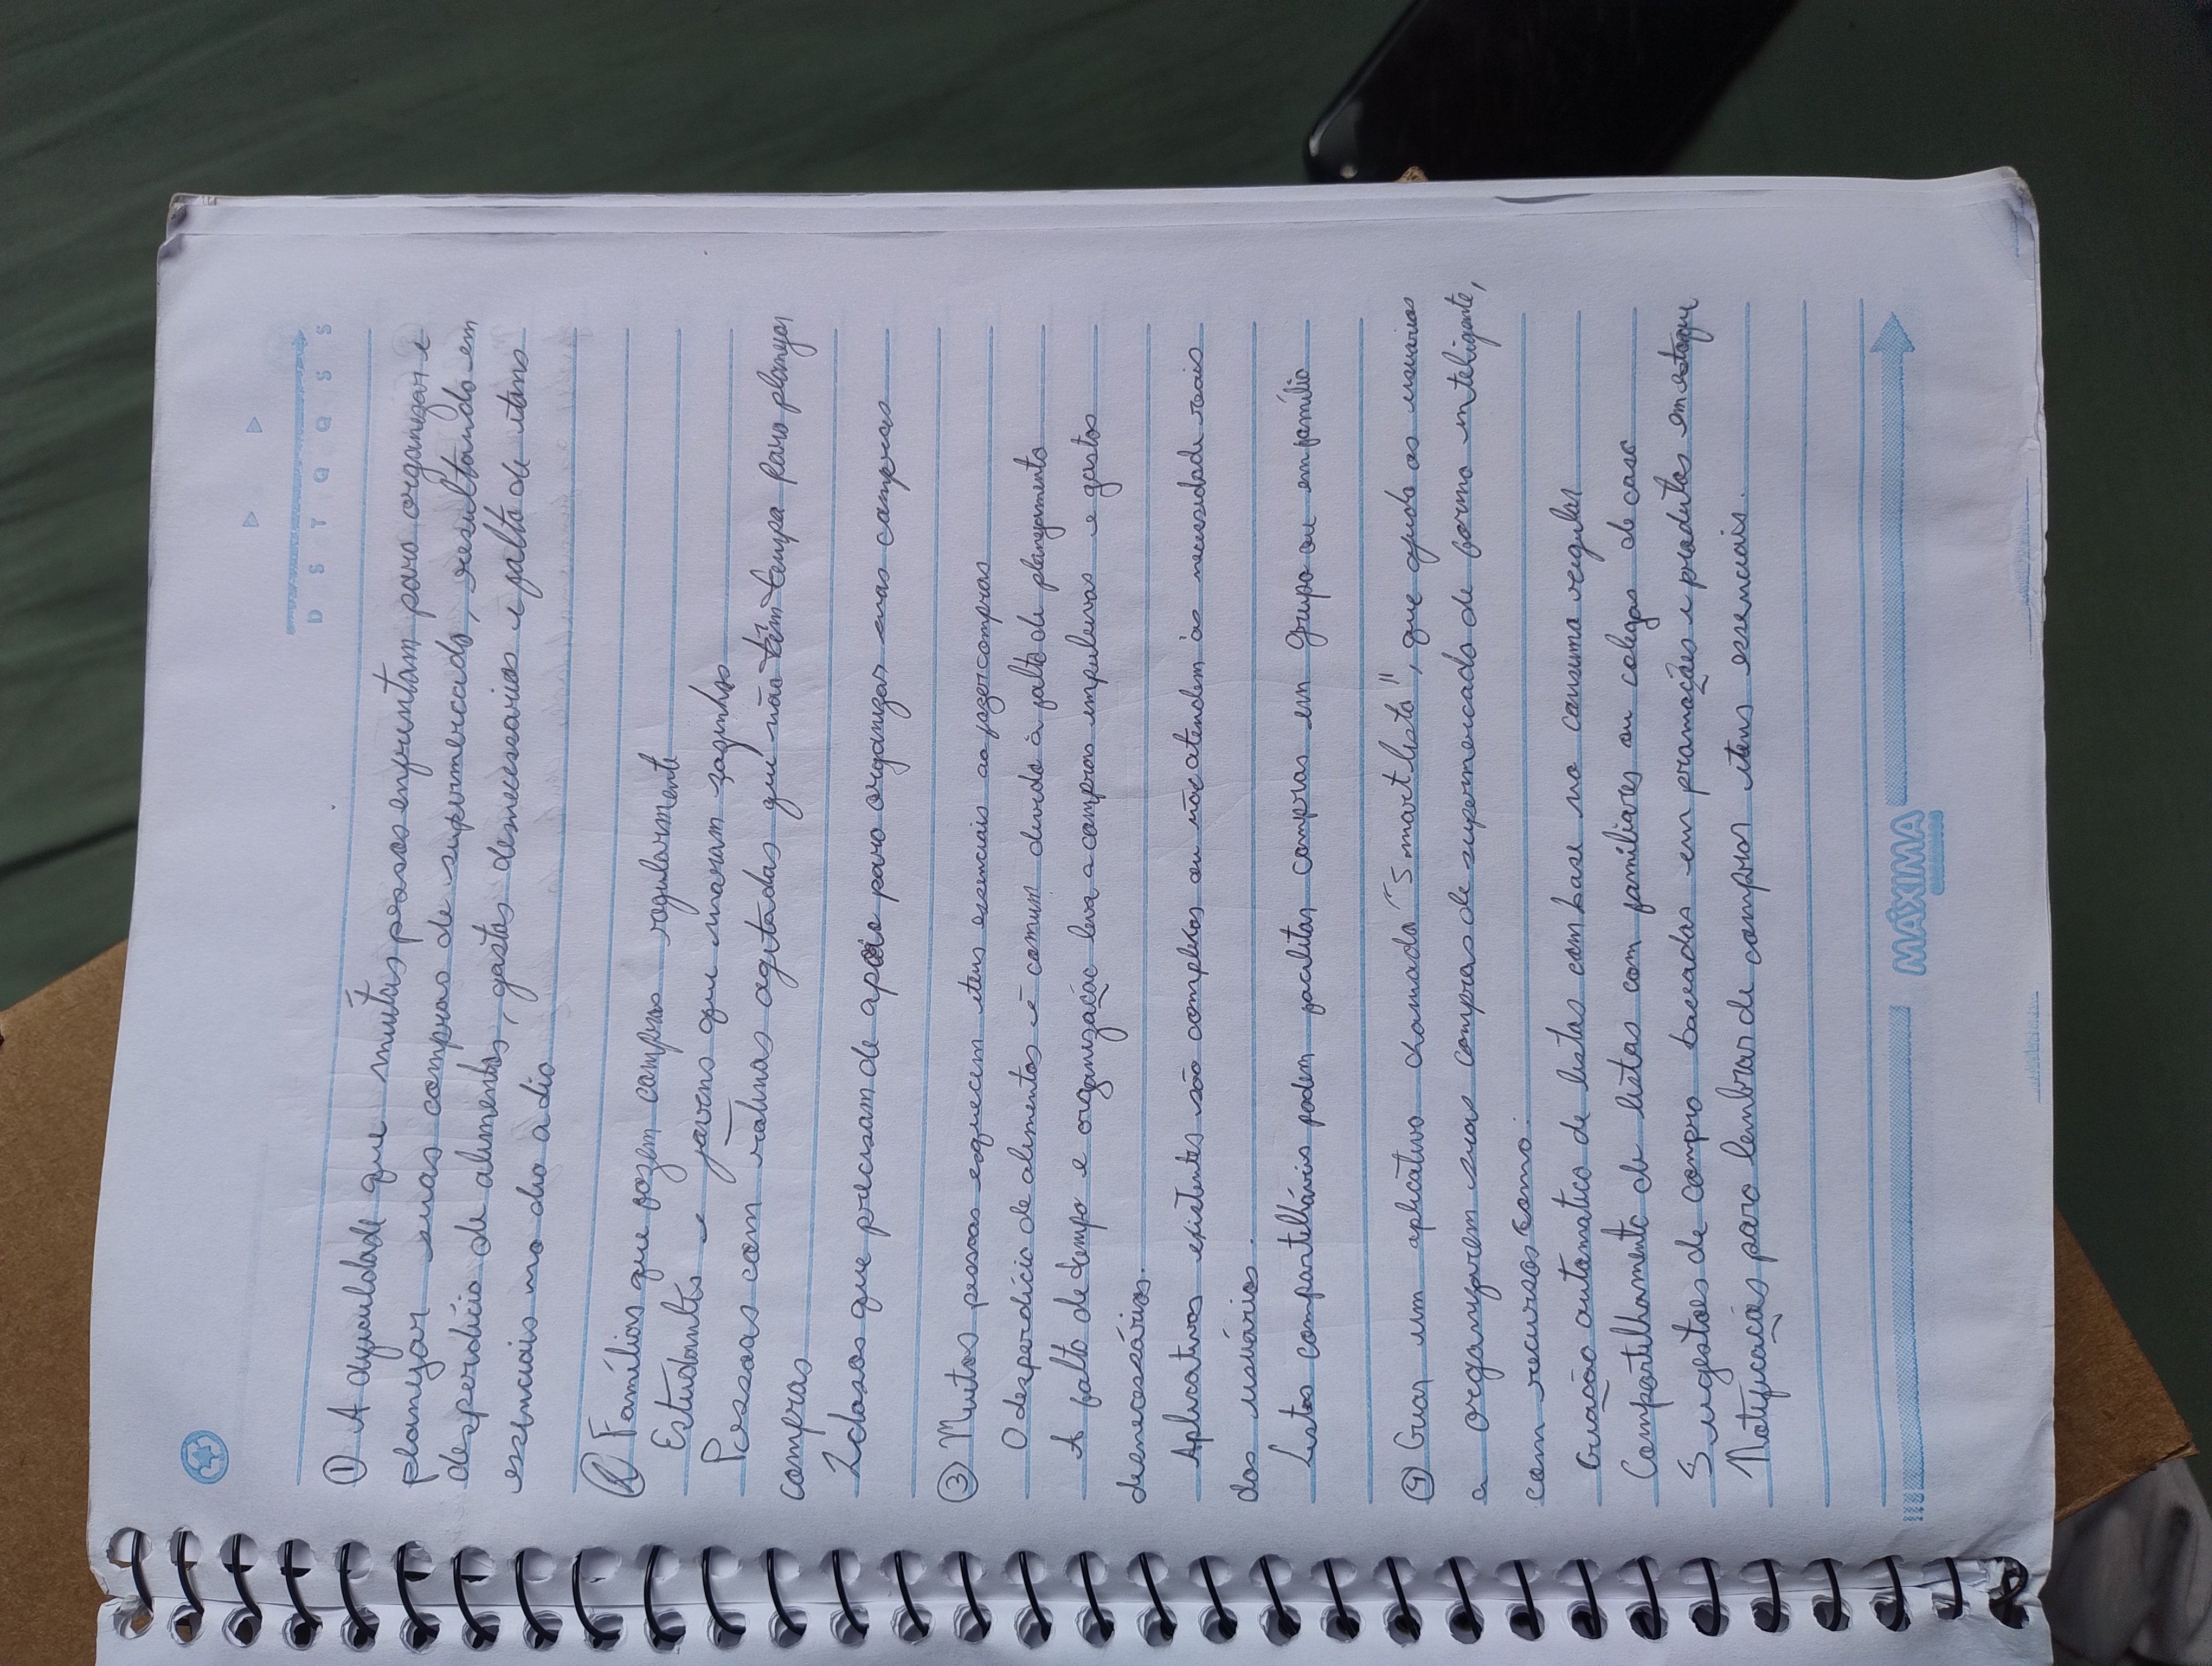 D S T Q Q S S
① A dificuldade que muitas pessoas enfrentam para organizar e
planejar suas compras de supermercado, resultando em
desperdício de alimentos, gastos desnecessarios e falta de itens
essenciais no dia a dia
② Famílias que fazem compras regularmente
Estudante e jovens que moram sozinhos
Pessoas com rotinas agitadas que não têm tempo para planejar
compras
Idosos que precisam de apoio para organizar suas compras
③ Muitas pessoas esquecem itens essenciais ao fazer compras
O desperdício de alimentos é comum devido à falta de planejamento
A falta de tempo e organização leva a compras impulsivas e gastos
desnecessários.
Aplicativos existentes são complexos ou não atendem às necessidade reais
dos usuários.
Listas compartilháveis podem facilitar compras em grupo ou em família
④ Criar um aplicativo chamado "Smart lista", que ajuda os usuários
a organizarem suas compras de supermercado de forma inteligente,
com recursos como:
Criação automatica de listas com base no consumo regular
Compartilhamento de listas com familiares ou colegas de casa
Sugestões de compra baseadas em promoções e produtos em estoque
Notificações para lembrar de comprar itens essenciais.
MÁXIMA